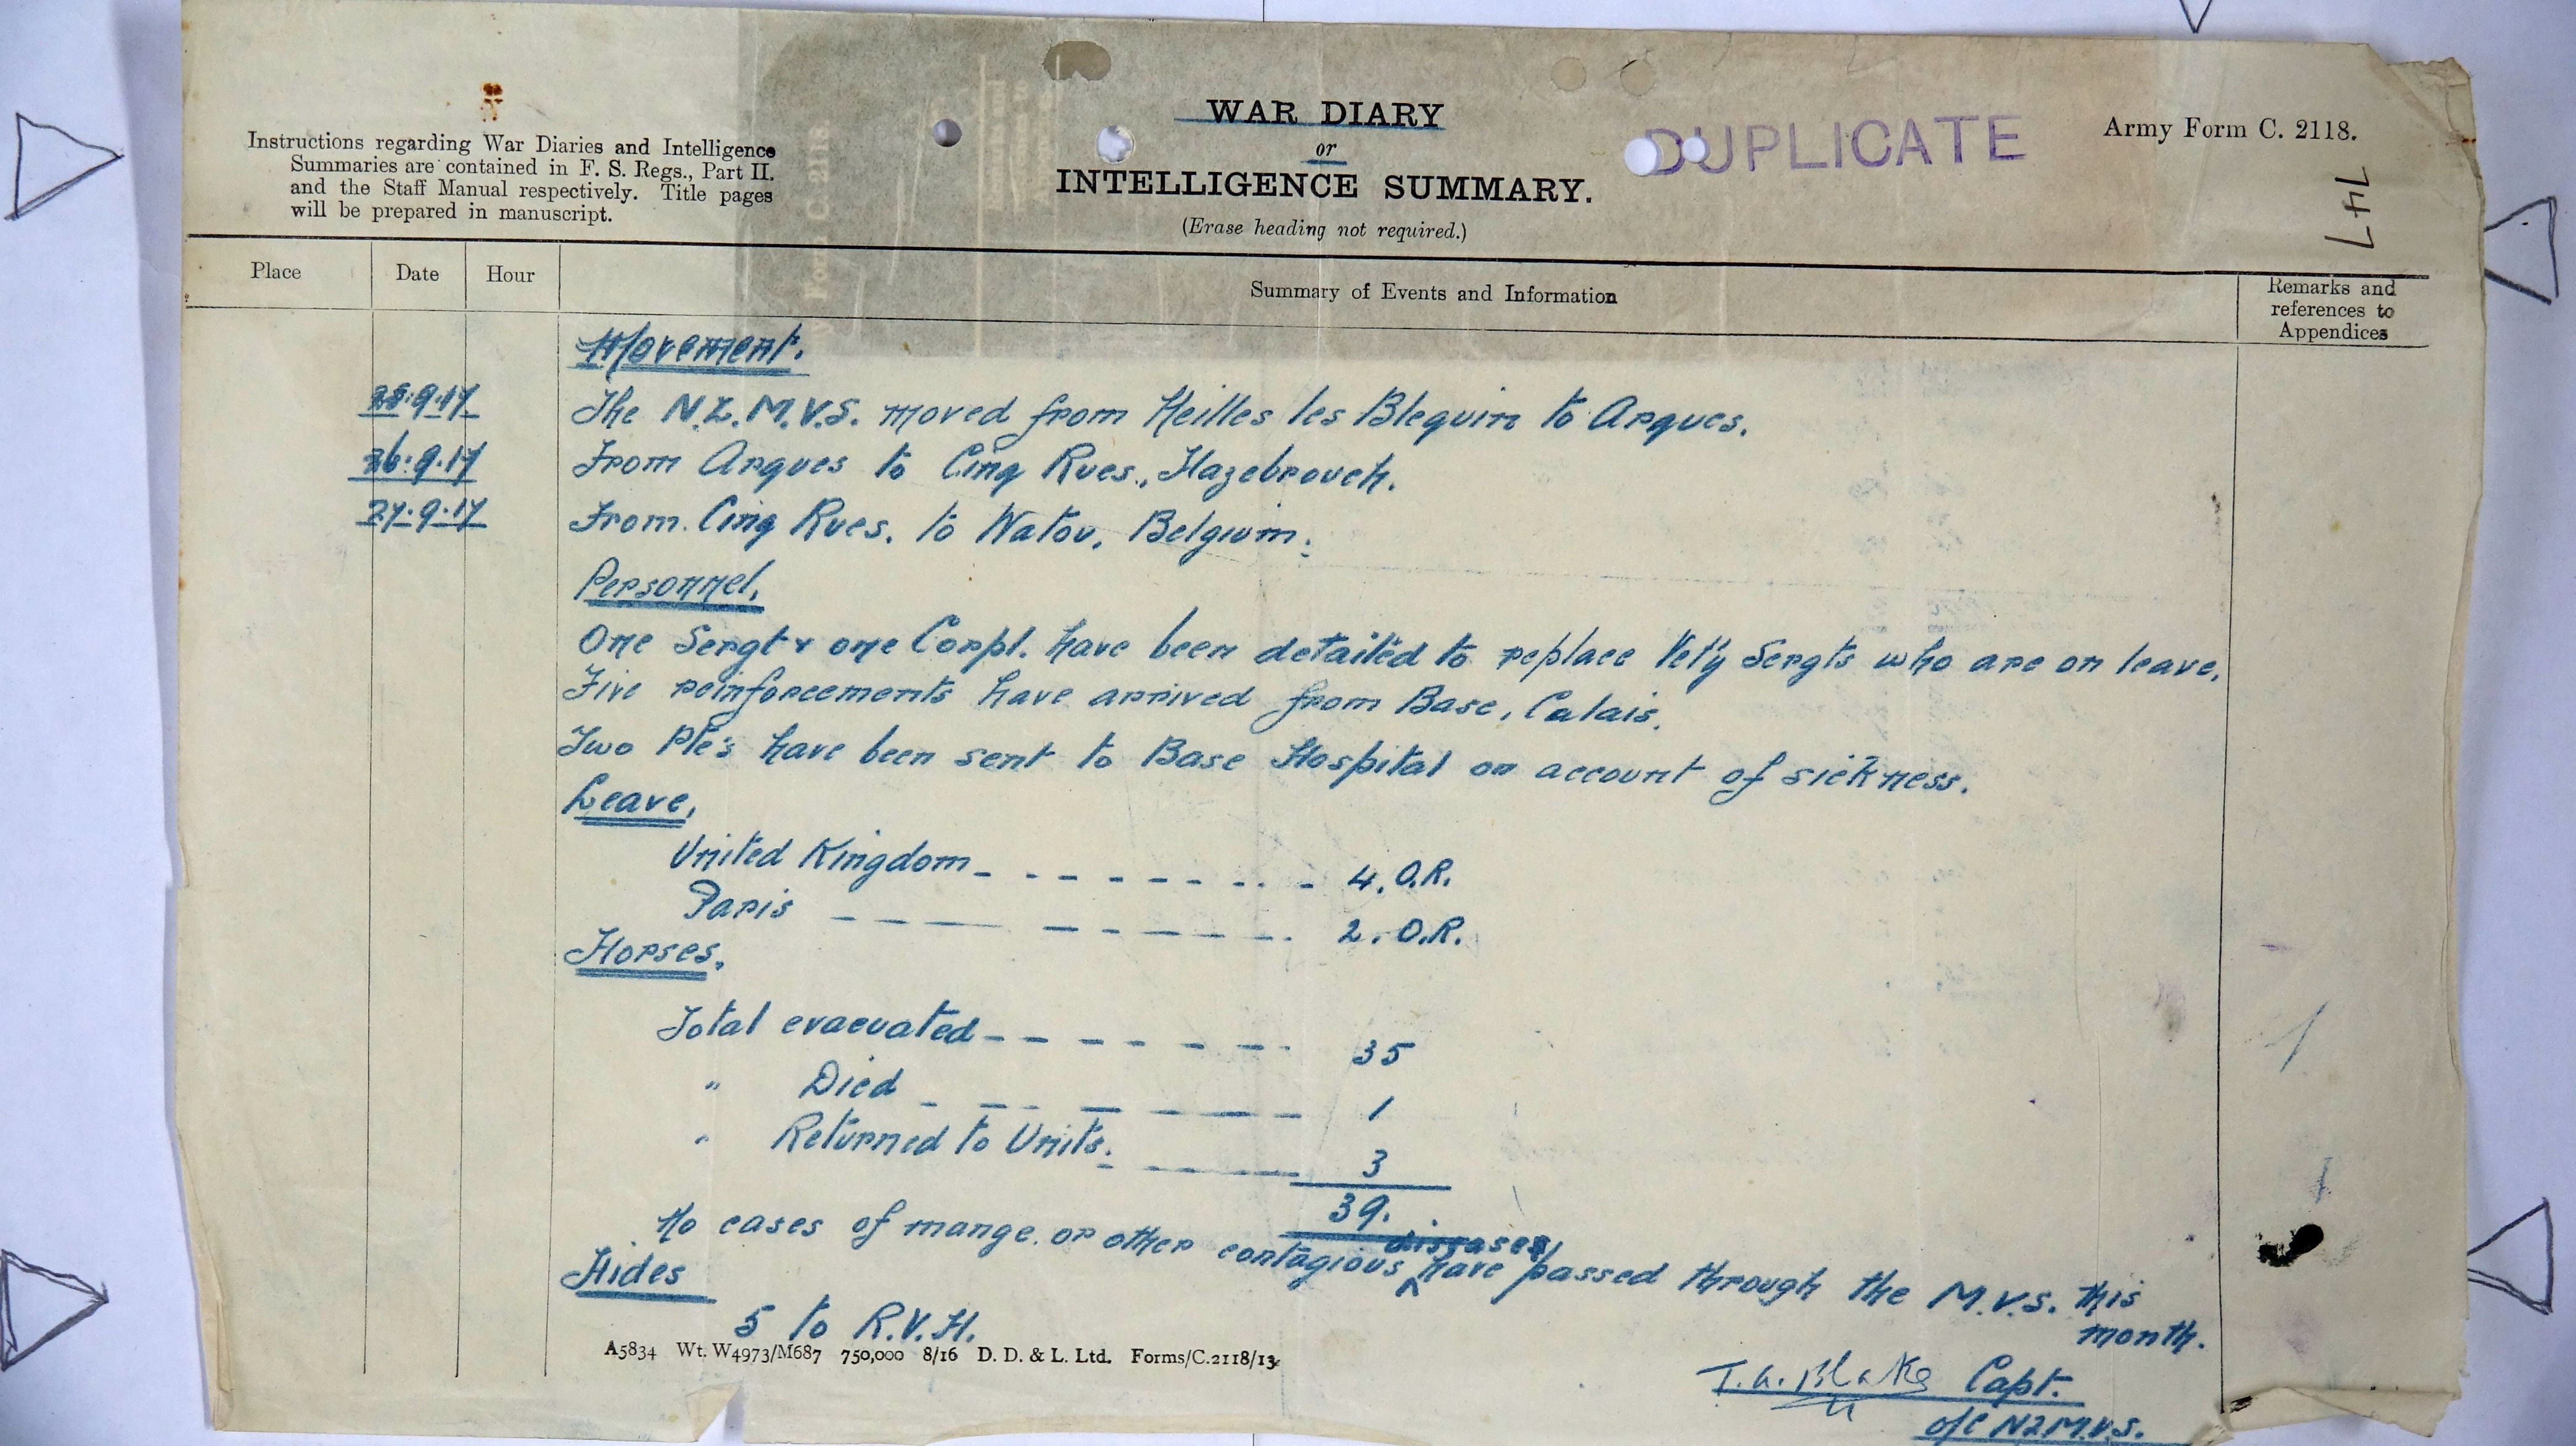 WAR DIARY
or
INTELLIGENCE SUMMARY.
(Erase heading not required.)
DUPLICATE
Army Form C. 2118.
Instructions regarding War Diaries and Intelligence
Summaries are contained in F. S. Regs., Part II.
and the Staff Manual respectively. Title pages
will be prepared in manuscript.
Place Date Hour Summary of Events and Information Remarks and
references to
Appendices
Movement.
25.9.17 The N.Z.M.V.S. moved from Heilles les Blequin to Arques.
26.9.17 From Arques to Cinq Rues, Hazebrouck.
27.9.17 From Cinq Rues. to Watou, Belgium.
Personnel.
One Sergt & one Corpl. have been detailed to replace Vet'y Sergts who are on leave.
Five reinforcements have arrived from Base, Calais.
Two Pte's have been sent to Base Hospital on account of sickness.
Leave.
United Kingdom 4. O.R.
Paris 2. O.R.
Horses.
Total evacuated 35
" Died 1
" Returned to Units. 3
39.
No cases of mange or other contagious diseases have passed through the M.V.S. this
month.
Hides
5 to R.V.H.
A5834 Wt. W4973/M687 750,000 8/16 D. D. & L. Ltd. Forms/C.2118/13.
T.A. Blake Capt.
o/c N.Z.M.V.S.